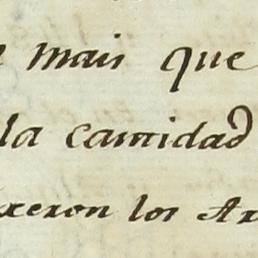 mais que
la cantidad
xeron los Ar